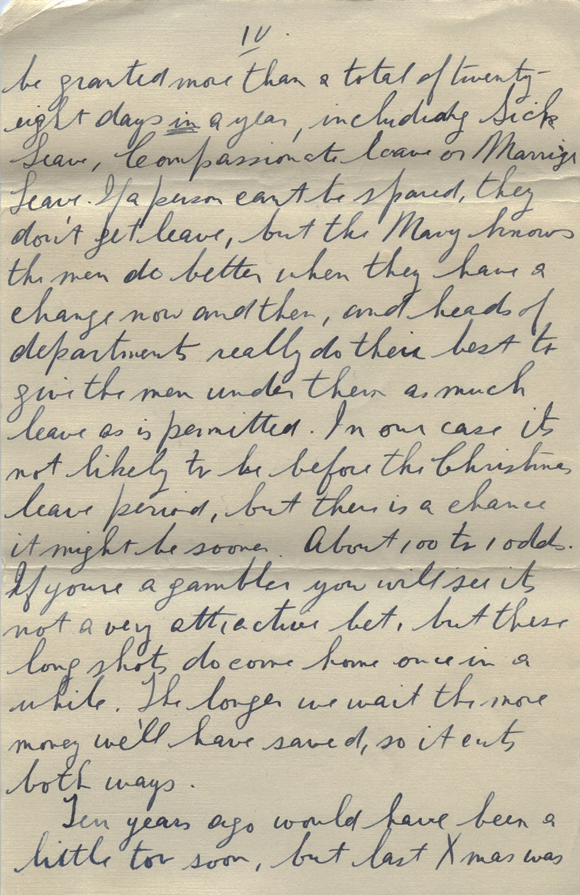 IV.
be granted more than a total of twenty-
eight days in a year, including Sick
Leave, Compassionate leave or Marriage
Leave. If a person can't be spared, they
don't get leave, but the Navy knows
the men do better when they have a
change now and then, and heads of
departments really do their best to
give the men under them as much
leave as is permitted. In our case its
not likely to be before the Christmas
leave period, but there is a chance
it might be sooner. About 100 to 1 odds.
If you're a gambler you will see its
not a very attractive bet, but these
long shots do come home once in a
while. The longer we wait the more
money we'll have saved, so it cuts
both ways.
Ten years ago would have been a
little too soon, but last Xmas was